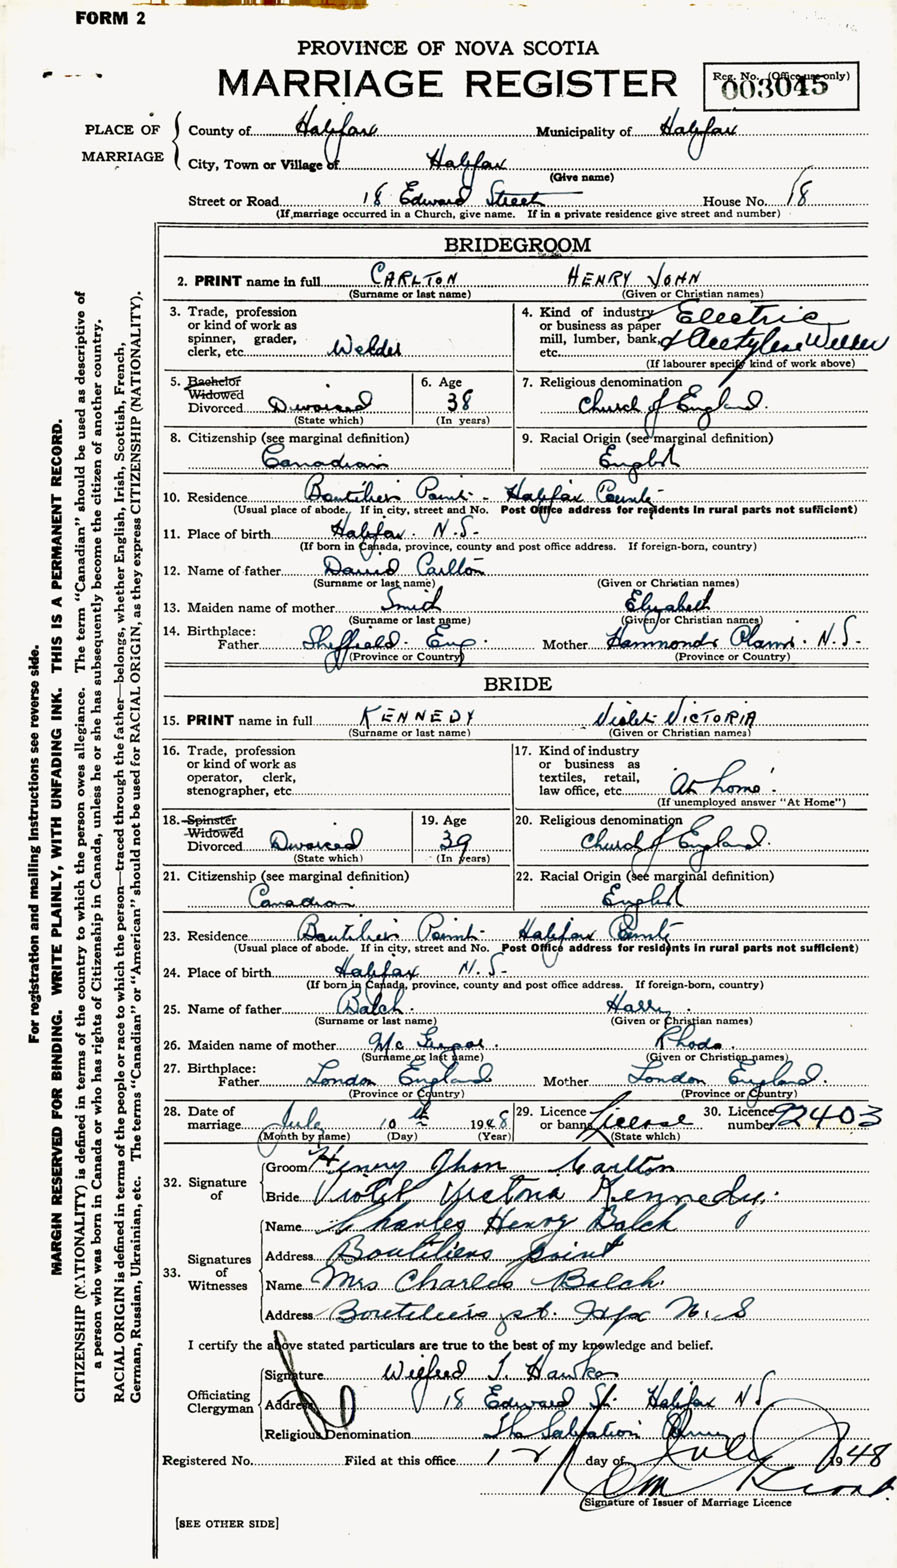 FORM 2
PROVINCE OF NOVA SCOTIA
MARRIAGE REGISTER
Reg. No. (Office use only)
003045
PLACE OF MARRIAGE
County of Halifax Municipality of Halifax
City, Town or Village of Halifax
(Give name)
Street or Road 18 Edward Street House No. 18
(If marriage occurred in a Church, give name. If in a private residence give street and number)
BRIDEGROOM
2. PRINT name in full CARLTON HENRY JOHN
(Surname or last name) (Given or Christian names)
3. Trade, profession or kind of work as spinner, grader, clerk, etc. Welder
4. Kind of industry or business as paper mill, lumber, bank, etc. Electric & Acetylene Welder
(If labourer specify kind of work above)
5. Bachelor Widowed Divorced Divorced
(State which)
6. Age 38
(In years)
7. Religious denomination Church of England.
8. Citizenship (see marginal definition) Canadian
9. Racial Origin (see marginal definition) English
10. Residence Boutiliers Point - Halifax County
(Usual place of abode. If in city, street and No. Post Office address for residents in rural parts not sufficient)
11. Place of birth Halifax. N.S.
(If born in Canada, province, county and post office address. If foreign-born, country)
12. Name of father David Carlton
(Surname or last name) (Given or Christian names)
13. Maiden name of mother Smith Elizabeth
(Surname or last name) (Given or Christian names)
14. Birthplace: Father Sheffield. Eng. Mother Hammonds Plains. N.S.
(Province or Country) (Province or Country)
BRIDE
15. PRINT name in full KENNEDY Violet VICTORIA
(Surname or last name) (Given or Christian names)
16. Trade, profession or kind of work as operator, clerk, stenographer, etc.
17. Kind of industry or business as textiles, retail, law office, etc. 'At home'
(If unemployed answer "At Home")
18. Spinster Widowed Divorced Divorced
(State which)
19. Age 39
(In years)
20. Religious denomination Church of England.
21. Citizenship (see marginal definition) Canadian
22. Racial Origin (see marginal definition) English
23. Residence Boutiliers Point - Halifax County
(Usual place of abode. If in city, street and No. Post Office address for residents in rural parts not sufficient)
24. Place of birth Halifax N.S.
(If born in Canada, province, county and post office address. If foreign-born, country)
25. Name of father Balch. Harry.
(Surname or last name) (Given or Christian names)
26. Maiden name of mother Rhoda
(Surname or last name) (Given or Christian names)
27. Birthplace: Father London England Mother London England.
(Province or Country) (Province or Country)
28. Date of marriage July 10th 1948
(Month by name) (Day) (Year)
29. Licence or banns License
(State which)
30. Licence number 92403
32. Signature of
Groom Henry Jhon Carlton
Bride Violet Victoria Kennedy.
33. Signatures of Witnesses
Name Charles Henry Balch
Address Boutiliers point
Name Mrs Charles Balch.
Address Boutiliers pt. Hfx N.S
I certify the above stated particulars are true to the best of my knowledge and belief.
Officiating Clergyman
Signature Wilfred T. Hawkes
Address 18 Edward St. Halifax NS
Religious Denomination The Salvation Army
Registered No. Filed at this office 12 day of July 1948
Signature of Issuer of Marriage Licence
[SEE OTHER SIDE]
For registration and mailing instructions see reverse side.
MARGIN RESERVED FOR BINDING. WRITE PLAINLY, WITH UNFADING INK. THIS IS A PERMANENT RECORD.
CITIZENSHIP (NATIONALITY) is defined in terms of the country to which the person owes allegiance. The term "Canadian" should be used as descriptive of
a person who was born in Canada or who has rights of Citizenship in Canada, unless he or she has subsequently become the citizen of another country.
RACIAL ORIGIN is defined in terms of the people or race to which the person—traced through the father—belongs, whether English, Irish, Scottish, French,
German, Russian, Ukrainian, etc. The terms "Canadian" or "American" should not be used for RACIAL ORIGIN, as they express CITIZENSHIP (NATIONALITY).